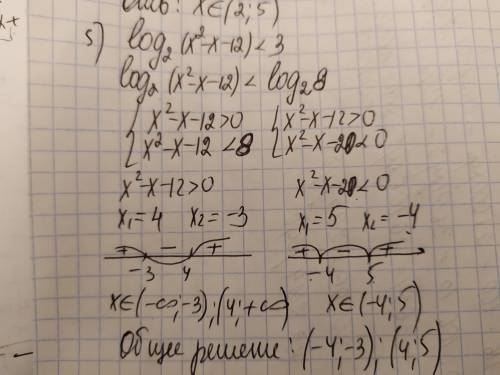 x∈(2;5)
5) log₂(x²-x-12)<3
log₂(x²-x-12)<log₂8
{x²-x-12>0 {x²-x-12>0
{x²-x-12<8 {x²-x-20<0
x²-x-12>0 x²-x-20<0
x₁=4 x₂=-3 x₁=5 x₂=-4
+ - + + - +
-3 4 -4 5
x∈(-∞;-3);(4;+∞) x∈(-4;5)
Общее решение: (-4;-3);(4;5)